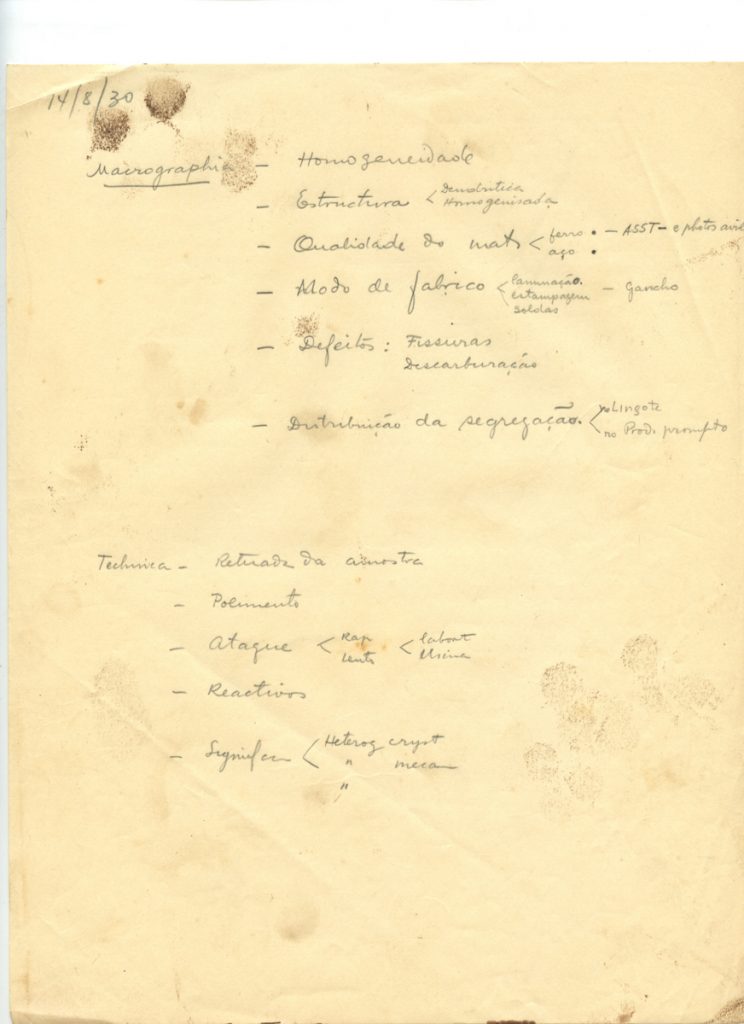 14/8/30
Macrographia — Homogeneidade
— Estructura < Dendritica
Homogenisada
— Qualidade do mat < ferro • — ASST — e photos
aço •
— Modo de fabrico < Laminação — Gancho
estampagem
soldas
— Defeitos : Fissuras
Descarburação
— Distribuição da segregação. < Lingote
no Prod. prompto
Technica — Retirada da amostra
— Polimento
— Ataque < Rap < labort
lento Usina
— Reactivos
— < Heterog cryst
" mecan
"